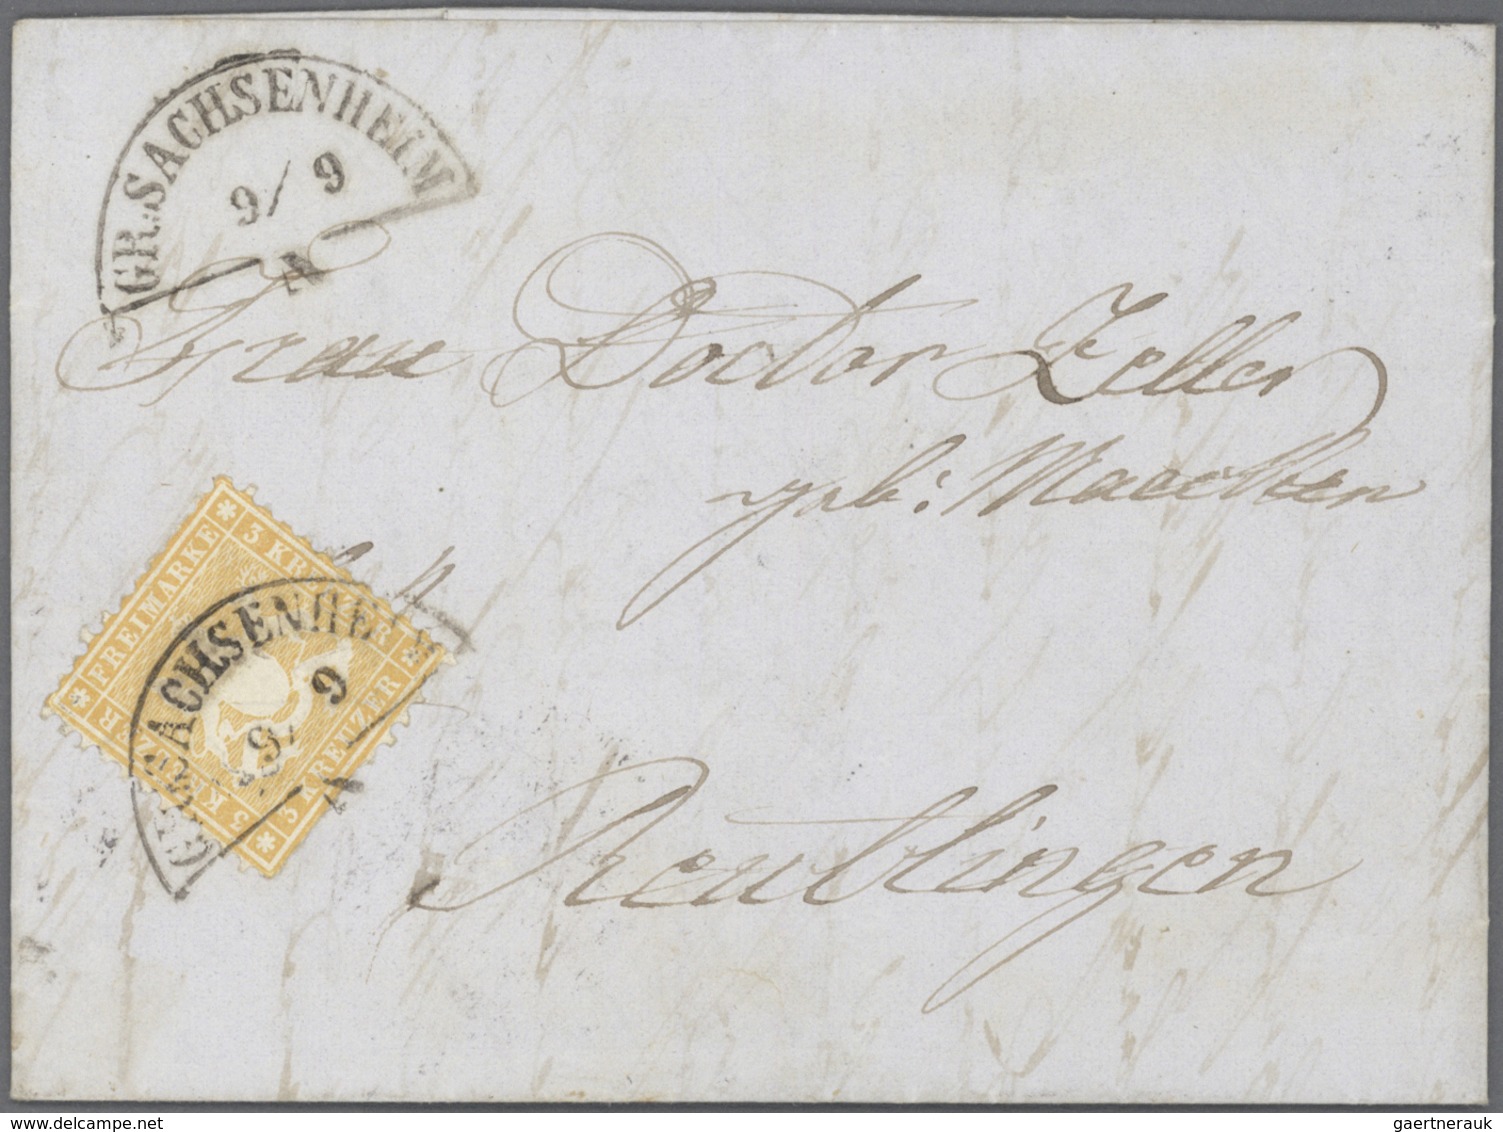 GR.SACHSENHEIM
9/ 9
A
Frau Doctor Zeller
geb:
FREIMARKE
3 KREUZER
3 KREUZER
SACHSENHEIM
9/ 9
A
Reutlingen
gaertnerauk @ www.delcampe.net